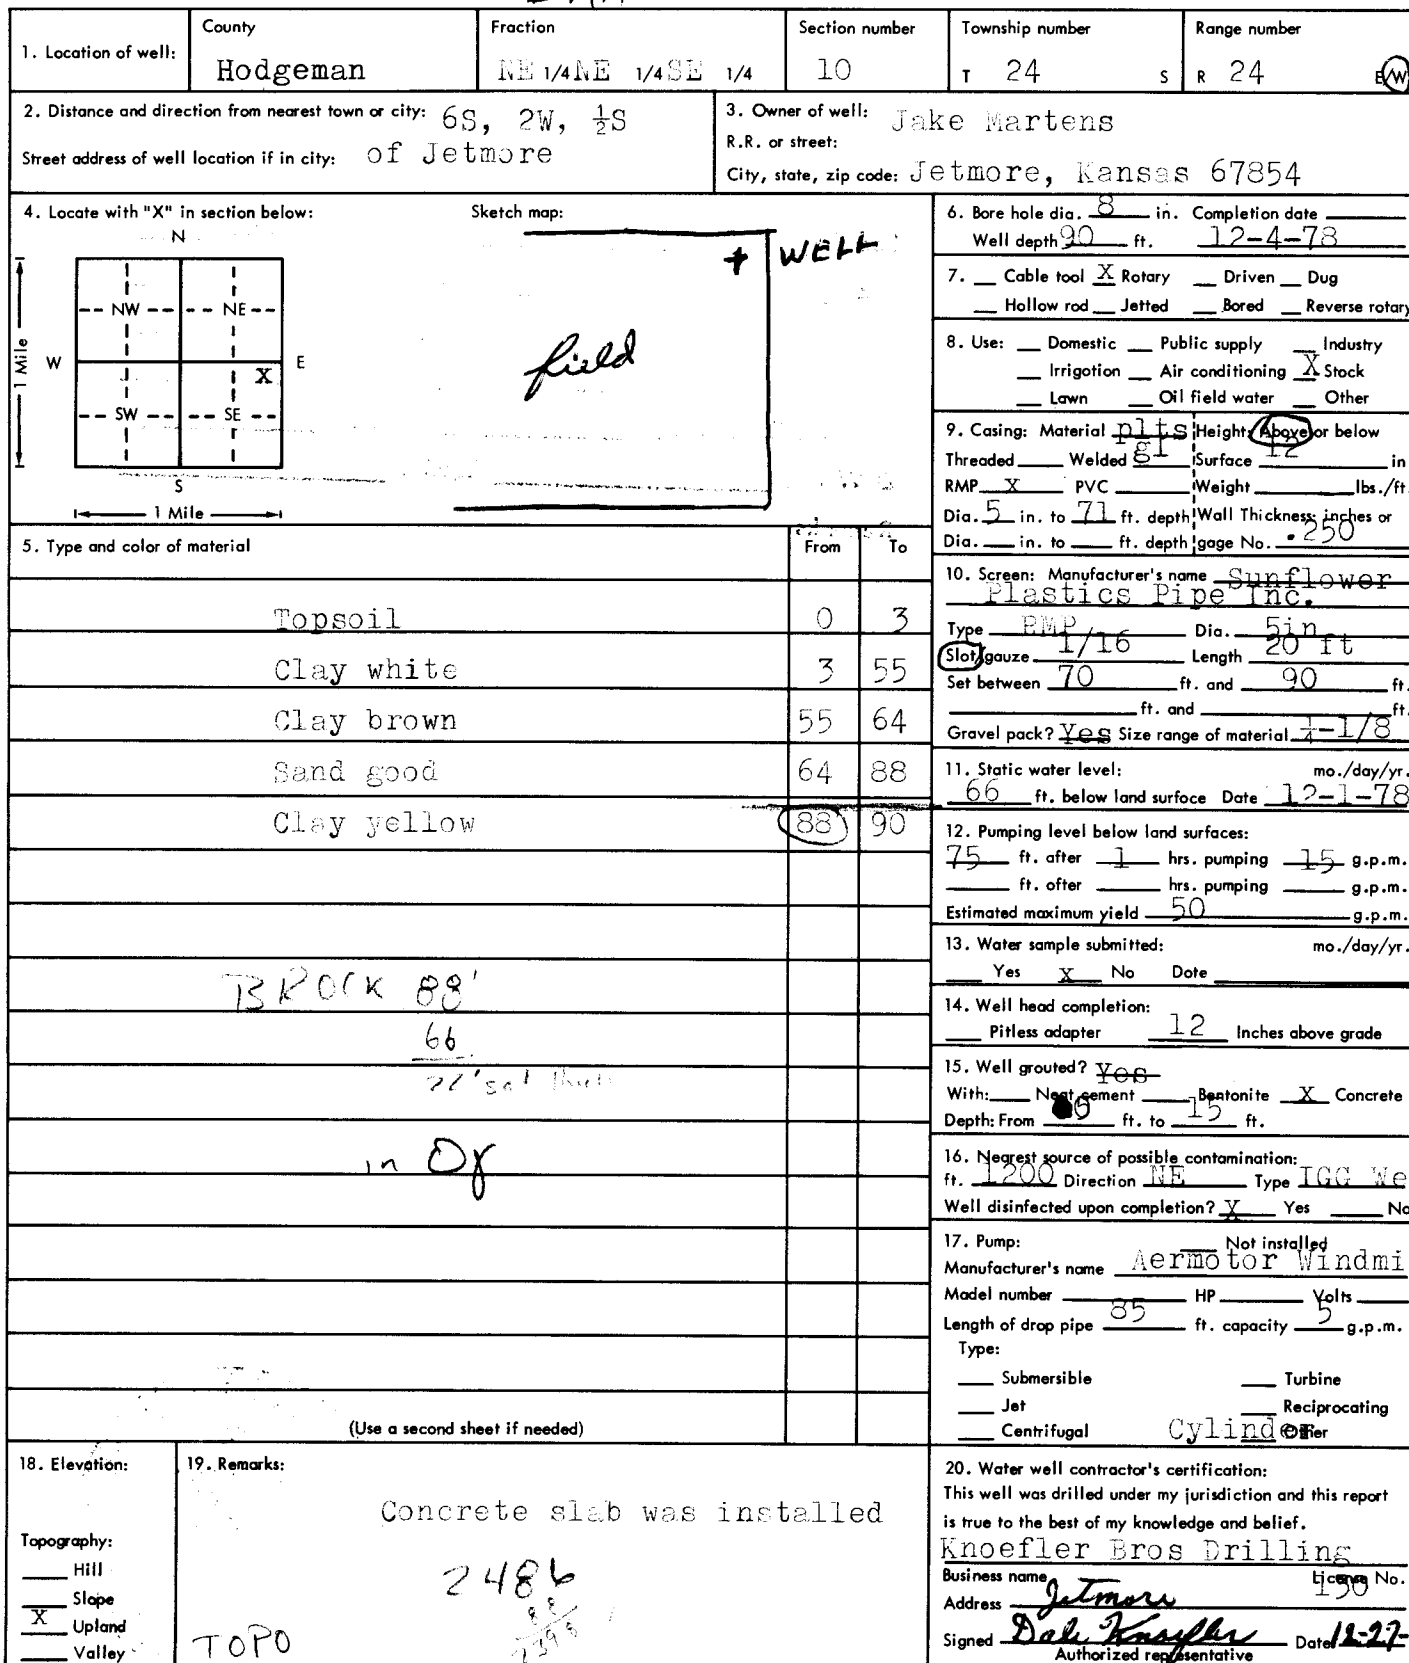 County Fraction Section number Township number Range number
1. Location of well: Hodgeman NE 1/4 NE 1/4 SE 1/4 10 T 24 S R 24 E/W
2. Distance and direction from nearest town or city: 6S, 2W, ½S
Street address of well location if in city: of Jetmore
3. Owner of well: Jake Martens
R.R. or street:
City, state, zip code: Jetmore, Kansas 67854
4. Locate with "X" in section below: Sketch map:
N
NW NE
W E
X
SW SE
S
1 Mile
1 Mile
+ WELL
field
5. Type and color of material From To
Topsoil 0 3
Clay white 3 55
Clay brown 55 64
Sand good 64 88
Clay yellow 88 90
BROCK 88'
66
22' sat thick
in
(Use a second sheet if needed)
6. Bore hole dia. 8 in. Completion date
Well depth 90 ft. 12-4-78
7. Cable tool X Rotary Driven Dug
Hollow rod Jetted Bored Reverse rotary
8. Use: Domestic Public supply Industry
Irrigation Air conditioning X Stock
Lawn Oil field water Other
9. Casing: Material plts Height: Above or below
Threaded Welded gl Surface 12 in
RMP X PVC Weight lbs./ft.
Dia. 5 in. to 71 ft. depth Wall Thickness: inches or
Dia. in. to ft. depth gage No. .250
10. Screen: Manufacturer's name Sunflower
Plastics Pipe Inc.
Type RMP Dia. 5in
Slot/gauze 1/16 Length 20 ft
Set between 70 ft. and 90 ft.
ft. and ft.
Gravel pack? Yes Size range of material ¼-1/8
11. Static water level: mo./day/yr.
66 ft. below land surface Date 12-1-78
12. Pumping level below land surfaces:
75 ft. after 1 hrs. pumping 15 g.p.m.
ft. after hrs. pumping g.p.m.
Estimated maximum yield 50 g.p.m.
13. Water sample submitted: mo./day/yr.
Yes X No Date
14. Well head completion:
Pitless adapter 12 Inches above grade
15. Well grouted? Yes
With: Neat cement Bentonite X Concrete
Depth: From ft. to 15 ft.
16. Nearest source of possible contamination:
ft. 1200 Direction NE Type IGG We
Well disinfected upon completion? X Yes No
17. Pump: Not installed
Manufacturer's name Aermotor Windmi
Model number HP Volts
Length of drop pipe 85 ft. capacity 5 g.p.m.
Type:
Submersible Turbine
Jet Reciprocating
Centrifugal Cylinder Other
18. Elevation:
Topography:
Hill
Slope
X Upland
Valley
19. Remarks:
Concrete slab was installed
2486
88
2398
TOPO
20. Water well contractor's certification:
This well was drilled under my jurisdiction and this report
is true to the best of my knowledge and belief.
Knoefler Bros Drilling
Business name License No.
Address Jetmore
Signed Dale Knoefler Date 12-27-
Authorized representative